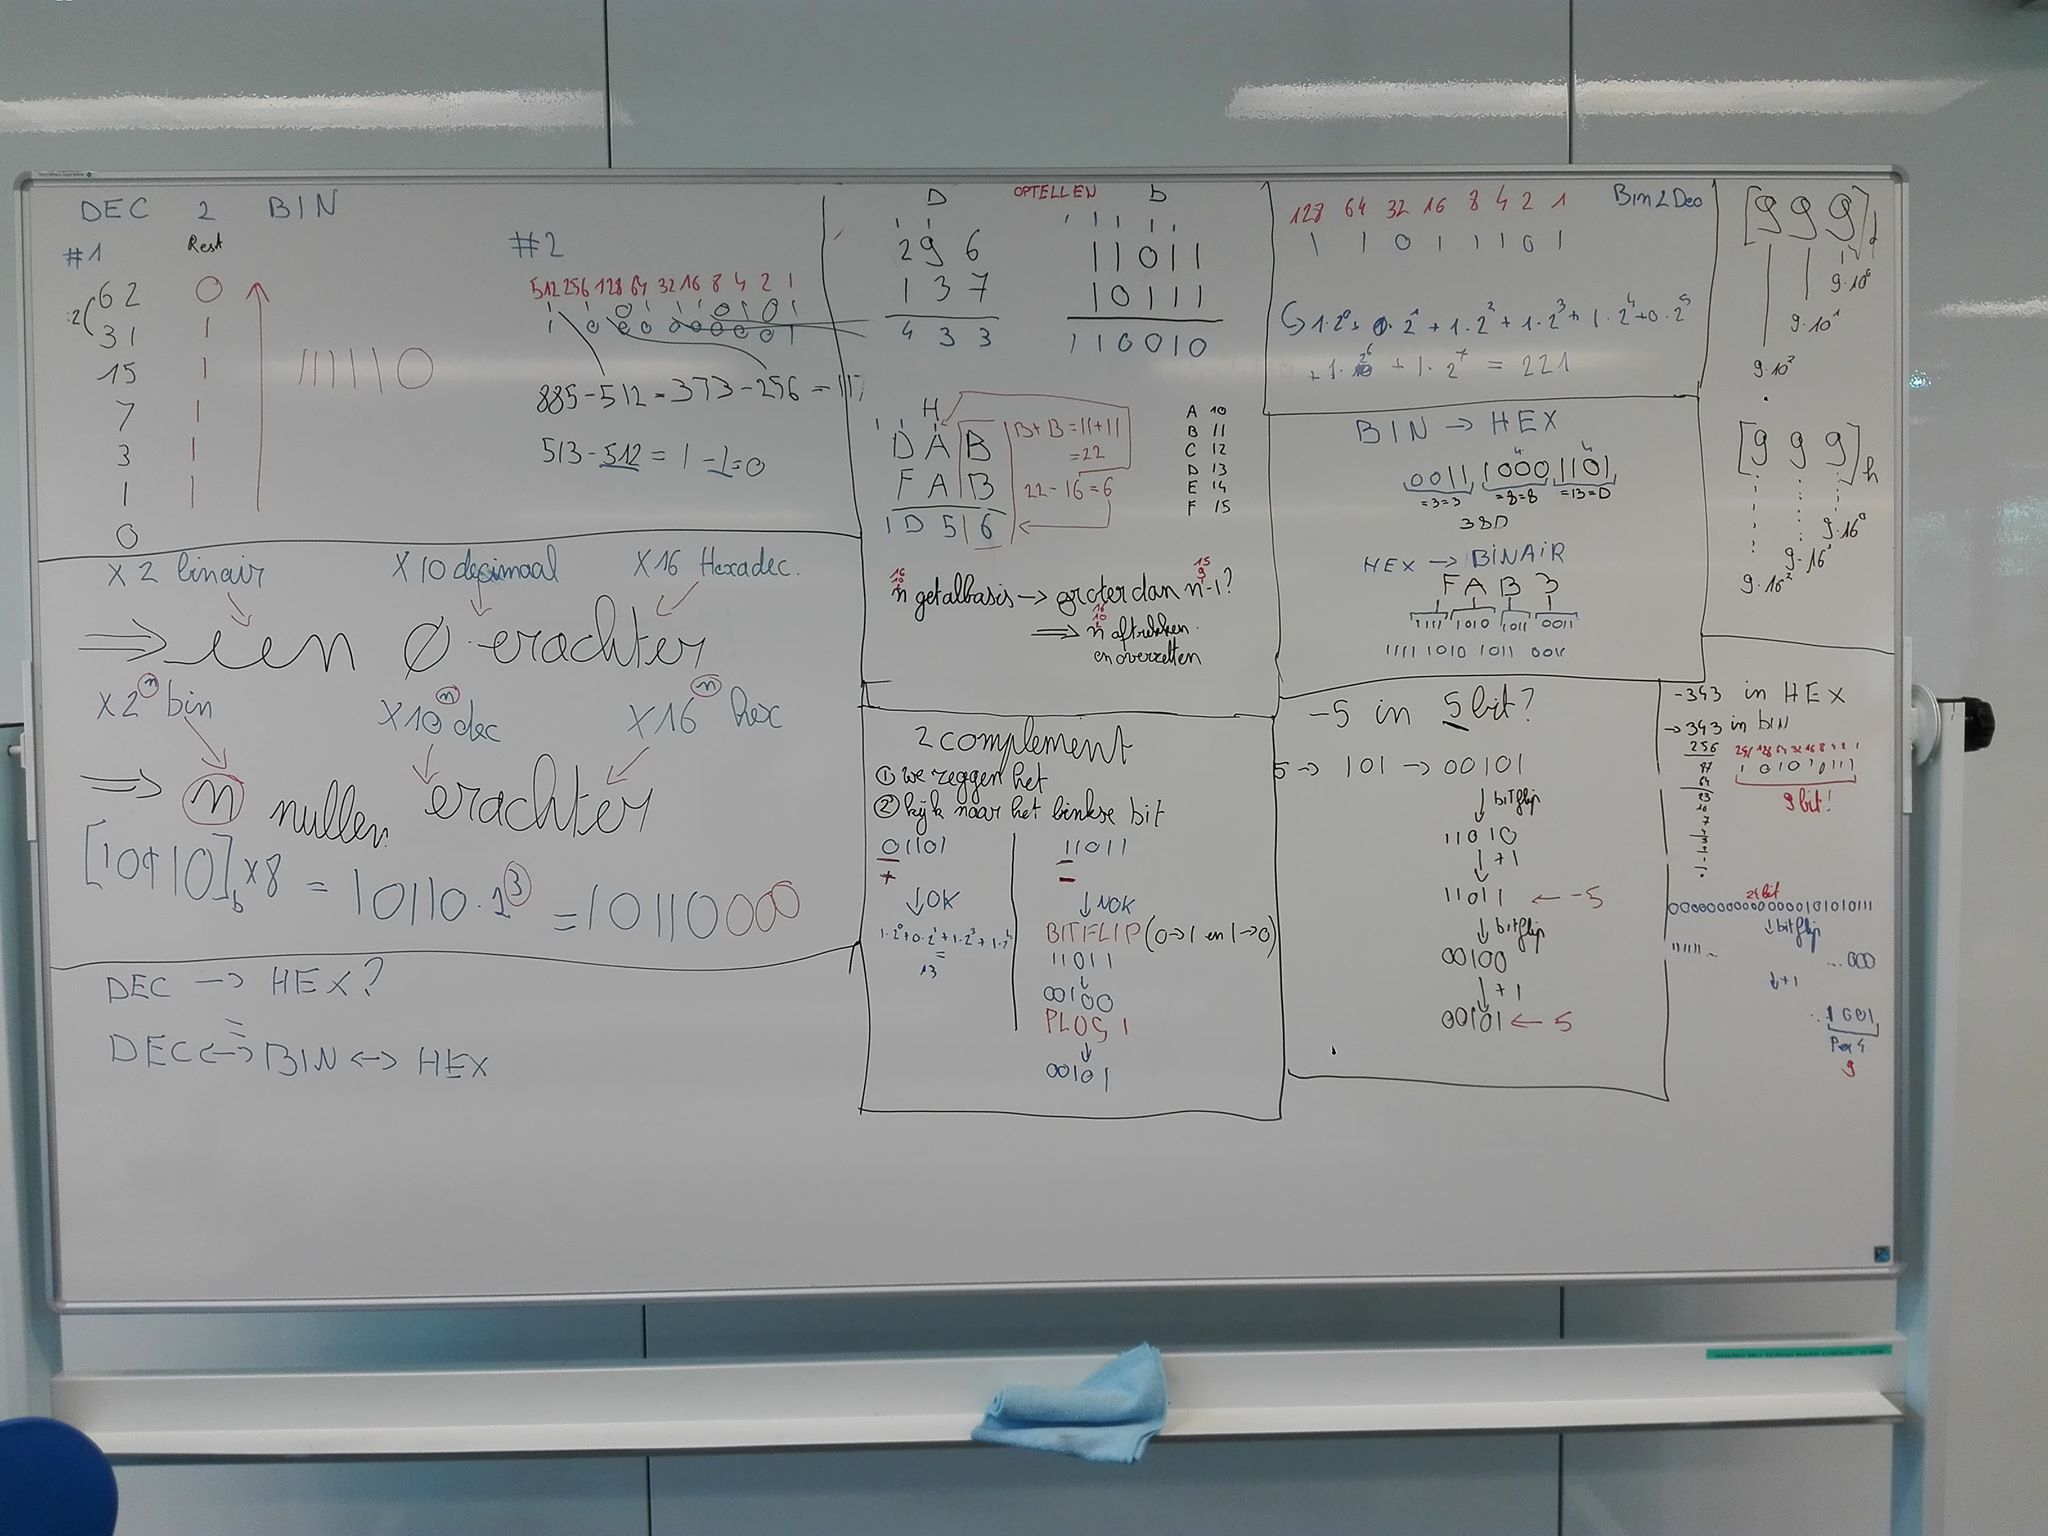 DEC 2 BIN
#1 Rest
62 0
:2
31 1
15 1
7 1
3 1
1 1
0
111110
#2
512 256 128 64 32 16 8 4 2 1
885-512=373-256=117
513-512=1-1=0
x2 binair x10 decimaal x16 Hexadec.
⇒ een Ø erachter
x2ⁿ bin x10ⁿ dec x16ⁿ hex
⇒ n nullen erachter
[10110]b x8 = 10110·2³ = 10110000
DEC → HEX?
=
DEC ↔ BIN ↔ HEX
OPTELLEN
D
1 1
296
137
433
b
1 1 1 1 1
11011
10111
110010
H
1 1 1
DAB
FAB
1D56
B+B=11+11
=22
22-16=6
A 10
B 11
C 12
D 13
E 14
F 15
16 15
10 9
n getalbasis → groter dan n-1?
16
10
⇒ n aftrekken
en overzetten
2 complement
① we zeggen het
② kijk naar het linkse bit
01101
+
↓OK
1·2⁰+0·2¹+1·2²+1·2³
=
13
11011
-
↓NOK
BITFLIP (0→1 en 1→0)
11011
↓
00100
PLUS 1
↓
00101
Bin2Dec
128 64 32 16 8 4 2 1
1 1 0 1 1 1 0 1
↪1·2⁰+0·2¹+1·2²+1·2³+1·2⁴+0·2⁵
+1·2⁶+1·2⁷=221
BIN → HEX
4 4
0011 1000 1101
=3=3 =8=8 =13=D
38D
HEX → BINAIR
FAB3
1111 1010 1011 0011
1111 1010 1011 0011
-5 in 5 bit?
5 → 101 → 00101
↓ bitflip
11010
↓+1
11011 ← -5
↓ bitflip
00100
↓+1
00101 ← 5
[999]d
9·10⁰
9·10¹
9·10²
[999]h
9·16⁰
9·16¹
9·16²
-343 in HEX
→343 in BIN
256
87
64
23
16
7
4
3
2
1
256 128 64 32 16 8 4 2 1
1 0 1 0 1 0 1 1 1
9 bit!
24 bit
↓bitflip
...000
↓+1
...1001
Per 4
9